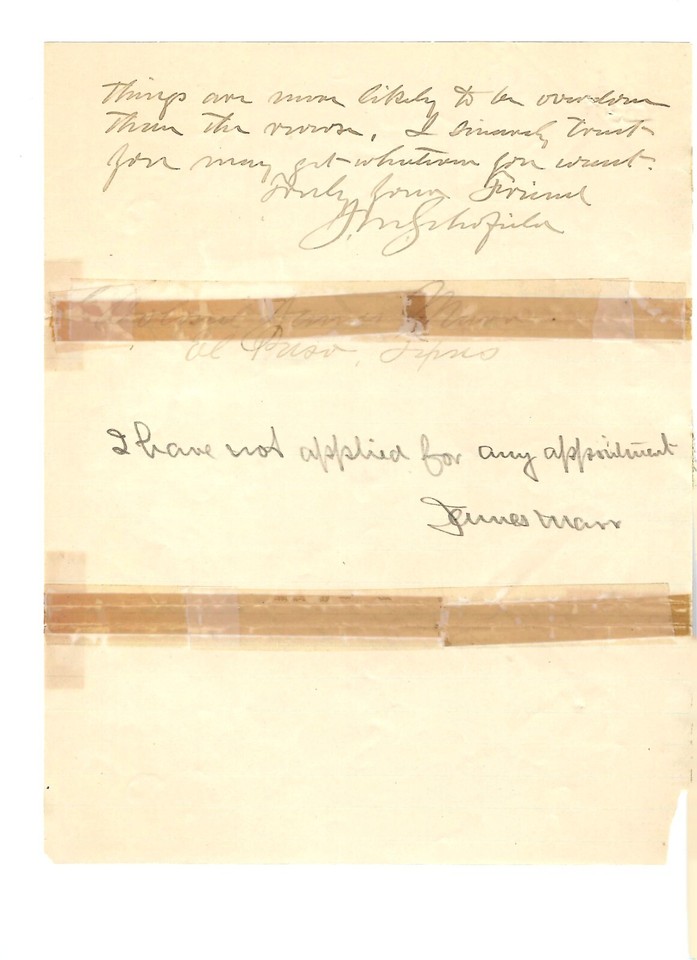 things are more likely to be overdone
than the reverse. I sincerely trust
you may get whatever you want.
Truly your Friend
J.M. Schofield
Colonel James Marr
El Paso, Texas
I have not applied for any appointment
James Marr